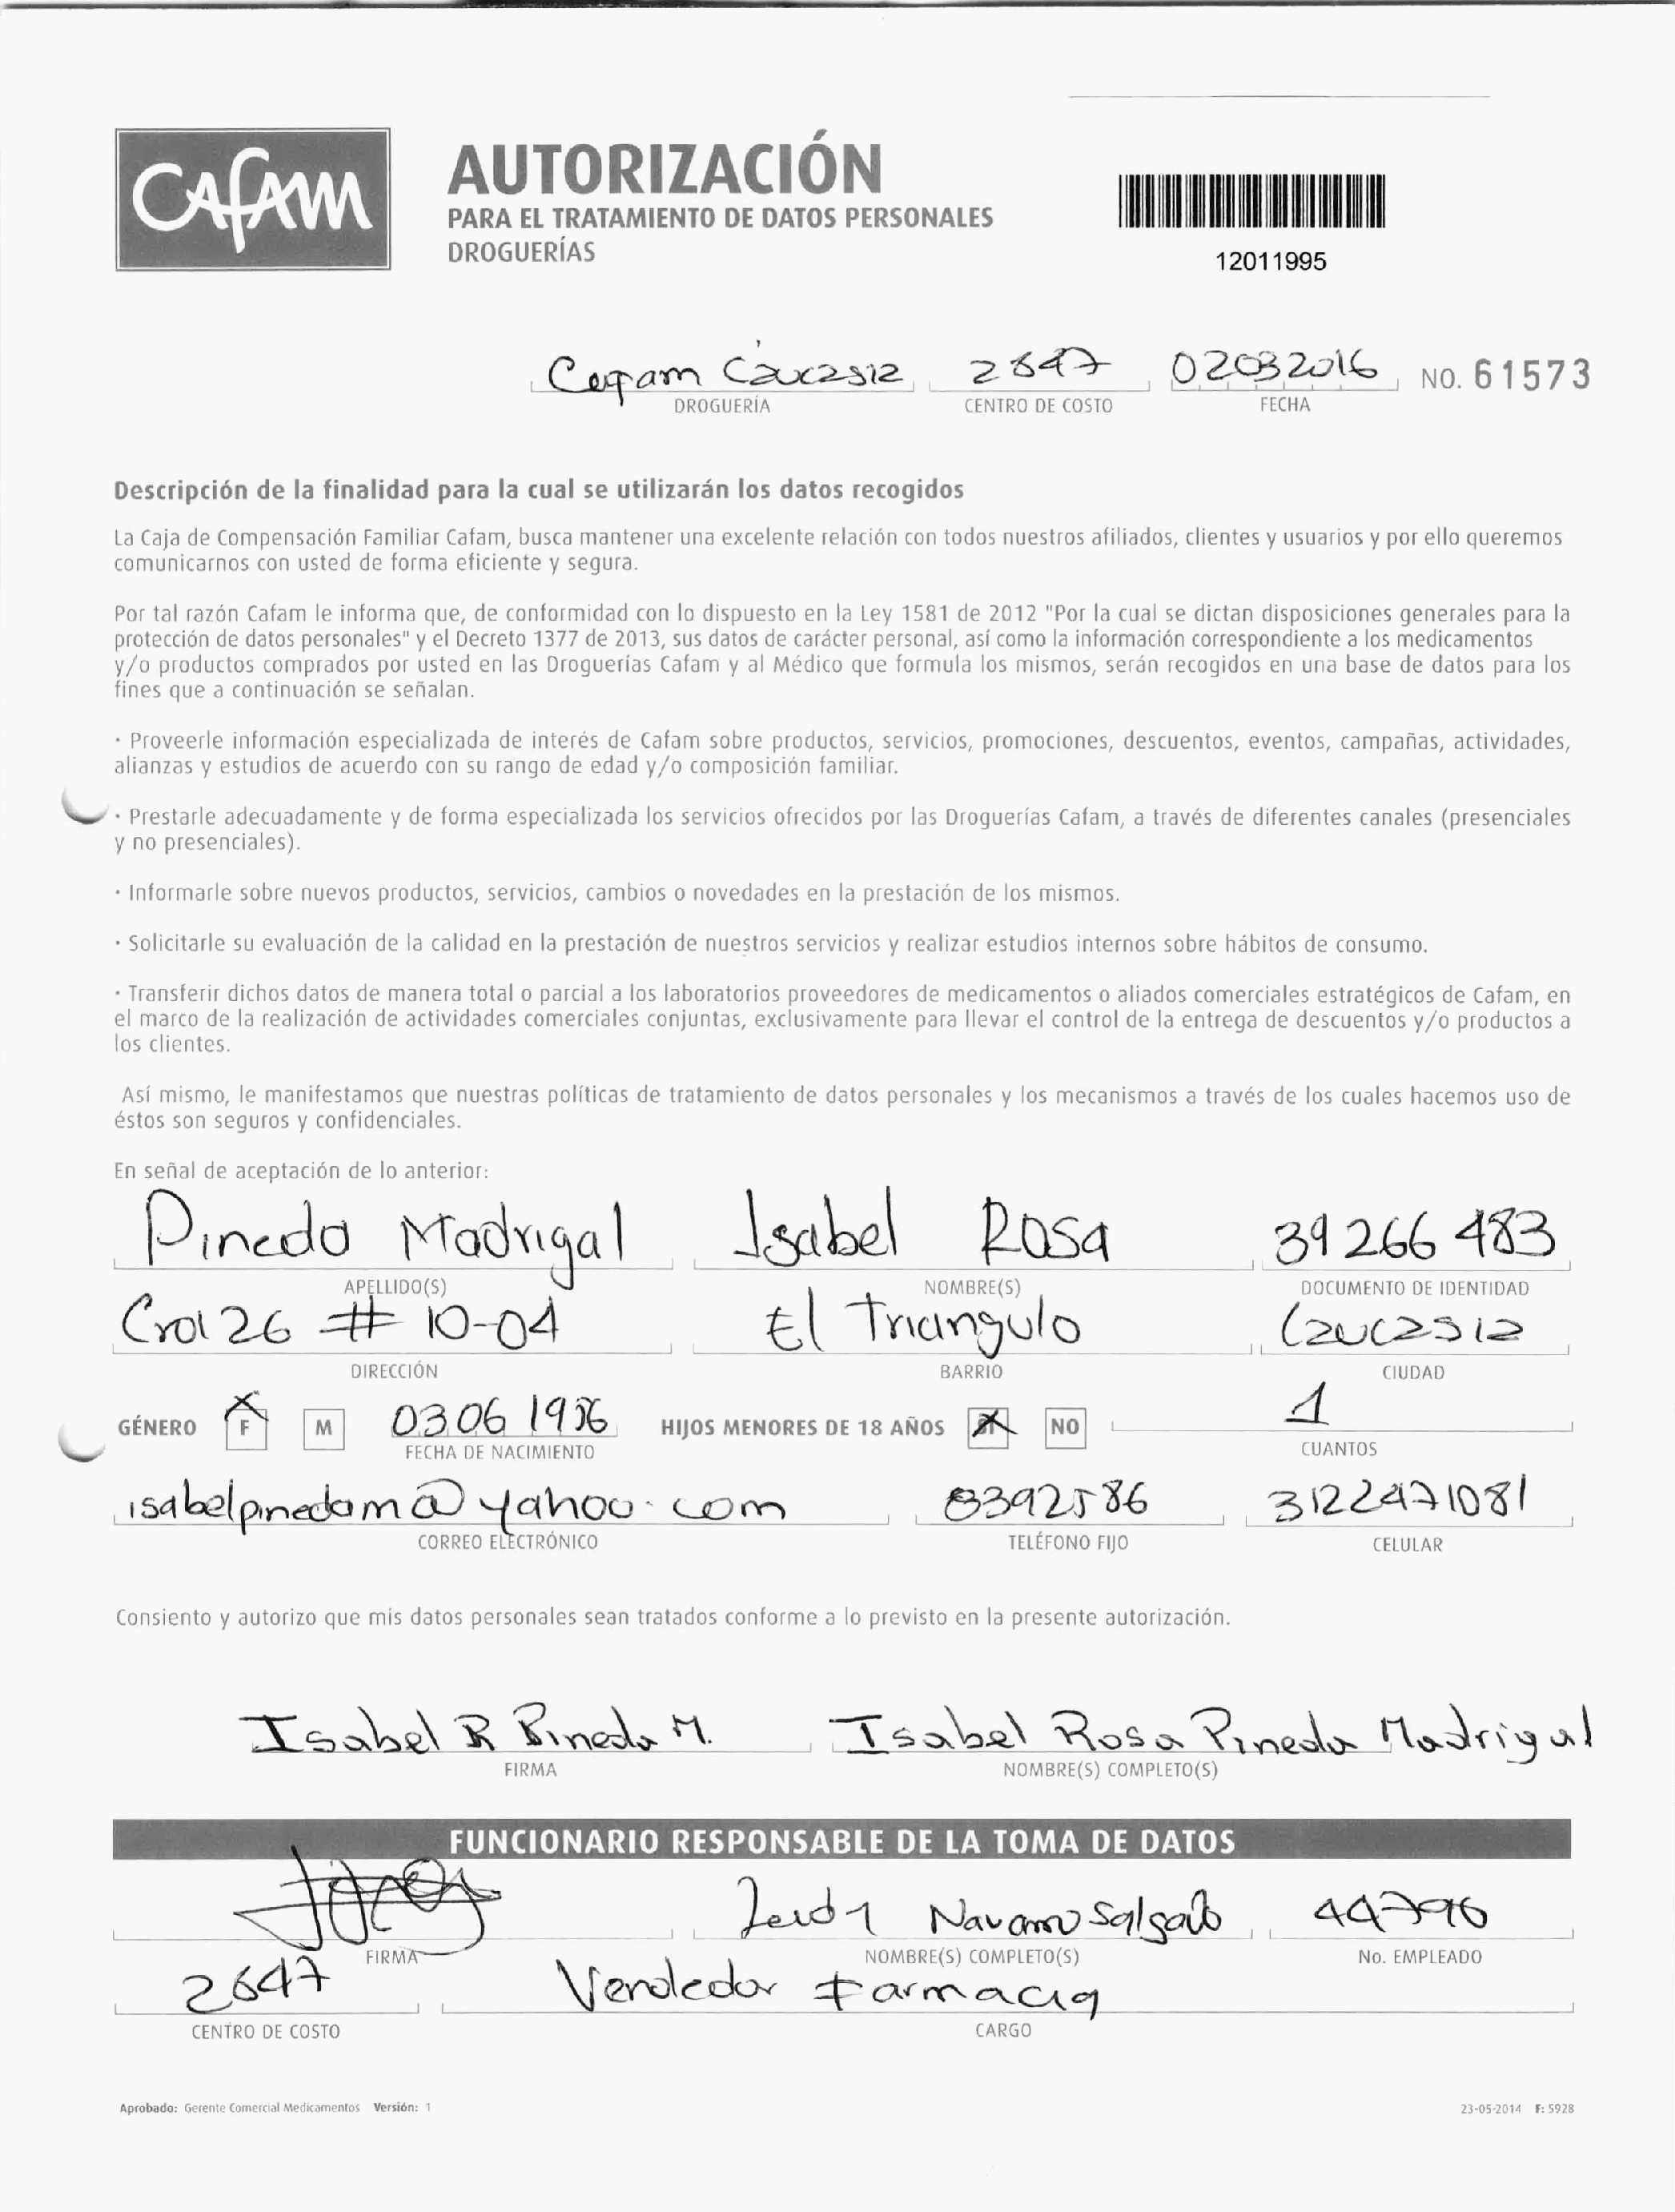 CAFAM
AUTORIZACIÓN
PARA EL TRATAMIENTO DE DATOS PERSONALES
DROGUERÍAS
12011995
Cafam Caucasia 2647 02032016 NO. 61573
DROGUERÍA CENTRO DE COSTO FECHA
Descripción de la finalidad para la cual se utilizarán los datos recogidos
La Caja de Compensación Familiar Cafam, busca mantener una excelente relación con todos nuestros afiliados, clientes y usuarios y por ello queremos
comunicarnos con usted de forma eficiente y segura.
Por tal razón Cafam le informa que, de conformidad con lo dispuesto en la Ley 1581 de 2012 "Por la cual se dictan disposiciones generales para la
protección de datos personales" y el Decreto 1377 de 2013, sus datos de carácter personal, así como la información correspondiente a los medicamentos
y/o productos comprados por usted en las Droguerías Cafam y al Médico que formula los mismos, serán recogidos en una base de datos para los
fines que a continuación se señalan.
· Proveerle información especializada de interés de Cafam sobre productos, servicios, promociones, descuentos, eventos, campañas, actividades,
alianzas y estudios de acuerdo con su rango de edad y/o composición familiar.
· Prestarle adecuadamente y de forma especializada los servicios ofrecidos por las Droguerías Cafam, a través de diferentes canales (presenciales
y no presenciales).
· Informarle sobre nuevos productos, servicios, cambios o novedades en la prestación de los mismos.
· Solicitarle su evaluación de la calidad en la prestación de nuestros servicios y realizar estudios internos sobre hábitos de consumo.
· Transferir dichos datos de manera total o parcial a los laboratorios proveedores de medicamentos o aliados comerciales estratégicos de Cafam, en
el marco de la realización de actividades comerciales conjuntas, exclusivamente para llevar el control de la entrega de descuentos y/o productos a
los clientes.
Así mismo, le manifestamos que nuestras políticas de tratamiento de datos personales y los mecanismos a través de los cuales hacemos uso de
éstos son seguros y confidenciales.
En señal de aceptación de lo anterior:
Pineda Madrigal Isabel Rosa 39 266 483
APELLIDO(S) NOMBRE(S) DOCUMENTO DE IDENTIDAD
Cra 26 # 10-04 El Triangulo Caucasia
DIRECCIÓN BARRIO CIUDAD
GÉNERO F M 03 06 HIJOS MENORES DE 18 AÑOS SI NO 1
FECHA DE NACIMIENTO CUANTOS
isabelpinedam@yahoo.com 8392586 3122471081
CORREO ELECTRÓNICO TELÉFONO FIJO CELULAR
Consiento y autorizo que mis datos personales sean tratados conforme a lo previsto en la presente autorización.
Isabel R Pineda M. Isabel Rosa Pineda Madrigal
FIRMA NOMBRE(S) COMPLETO(S)
FUNCIONARIO RESPONSABLE DE LA TOMA DE DATOS
Navarro Salgado 44796
FIRMA NOMBRE(S) COMPLETO(S) No. EMPLEADO
2647 Vendedor Farmacia
CENTRO DE COSTO CARGO
Aprobado: Gerente Comercial Medicamentos Versión: 1 23-05-2014 F: 5928